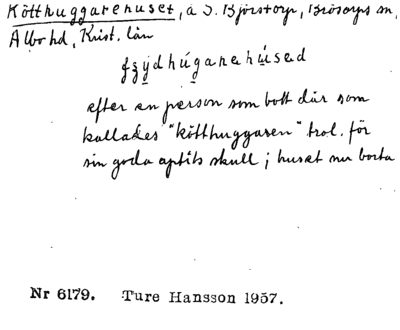 Kötthuggarehuset, å S. Björstorp, Brösarps sn,
Albo hd, Krist. län
efter en person som bott där som
kallades "kötthuggaren" trol. för
sin goda aptits skull; huset nu borta
Nr 6179. Ture Hansson 1957.